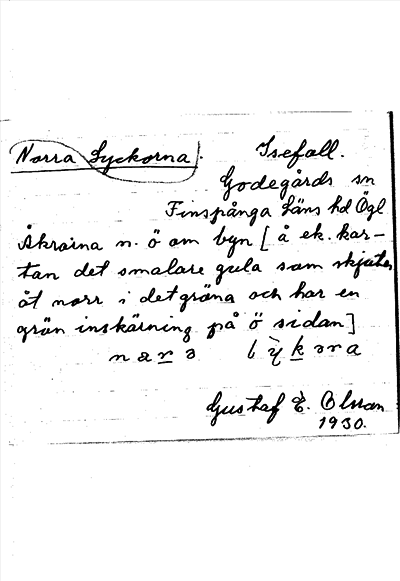 Norra Lyckorna. Isefall.
Godegårds sn
Finspånga Läns hd Ögl
Åkrarna n. ö om byn [å ek. kar-
tan det smalare gula som skjuter
åt norr i det gröna och har en
grön inskärning på ö sidan]
Gustaf E. Olsson
1930.